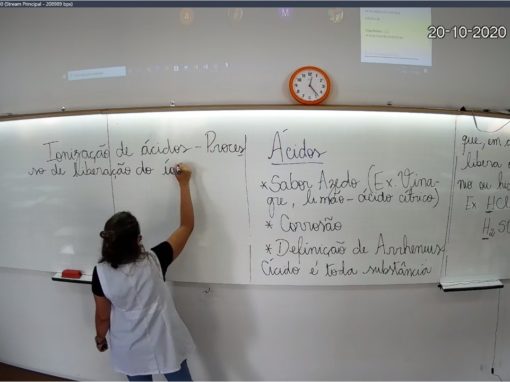 (Stream Principal - 208989 bps)
20-10-2020
Ionização de ácidos - Proces
so de liberação do ío
Ácidos
*Sabor Azedo (Ex. Vina
gre, limão - ácido cítrico)
* Corrosão
* Definição de Arrhenius
Ácido é toda substância
que, em
libera
no ou
Ex HCl
H₂SO